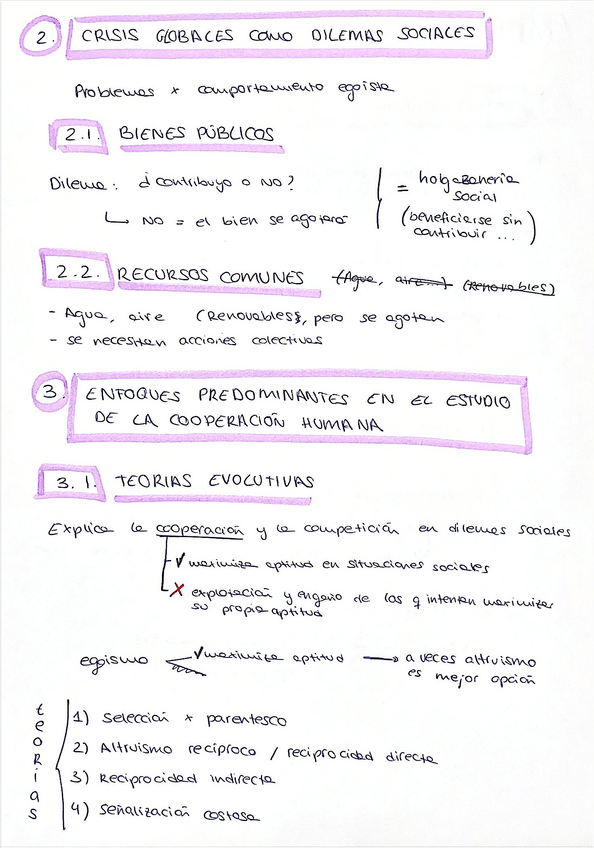 2. CRISIS GLOBALES COMO DILEMAS SOCIALES
Problemas x comportamiento egoista
2.1. BIENES PÚBLICOS
Dilema: ¿contribuyo o NO?
↳ NO = el bien se agotará
= holgazanería
social
(beneficiarse sin
contribuir ...)
2.2. RECURSOS COMUNES (Agua, aire...) (renovables)
- Agua, aire (Renovables), pero se agotan
- se necesitan acciones colectivas
3. ENFOQUES PREDOMINANTES EN EL ESTUDIO
DE LA COOPERACIÓN HUMANA
3.1. TEORIAS EVOLUTIVAS
Explica la cooperación y la competición en dilemas sociales
✓ maximiza aptitud en situaciones sociales
X explotación y engaño de los q intentan maximizar
su propia aptitud
egoismo ✓ maximiza aptitud → a veces altruismo
es mejor opción
teorias
1) Selección x parentesco
2) Altruismo recíproco / reciprocidad directa
3) Reciprocidad indirecta
4) Señalización costosa